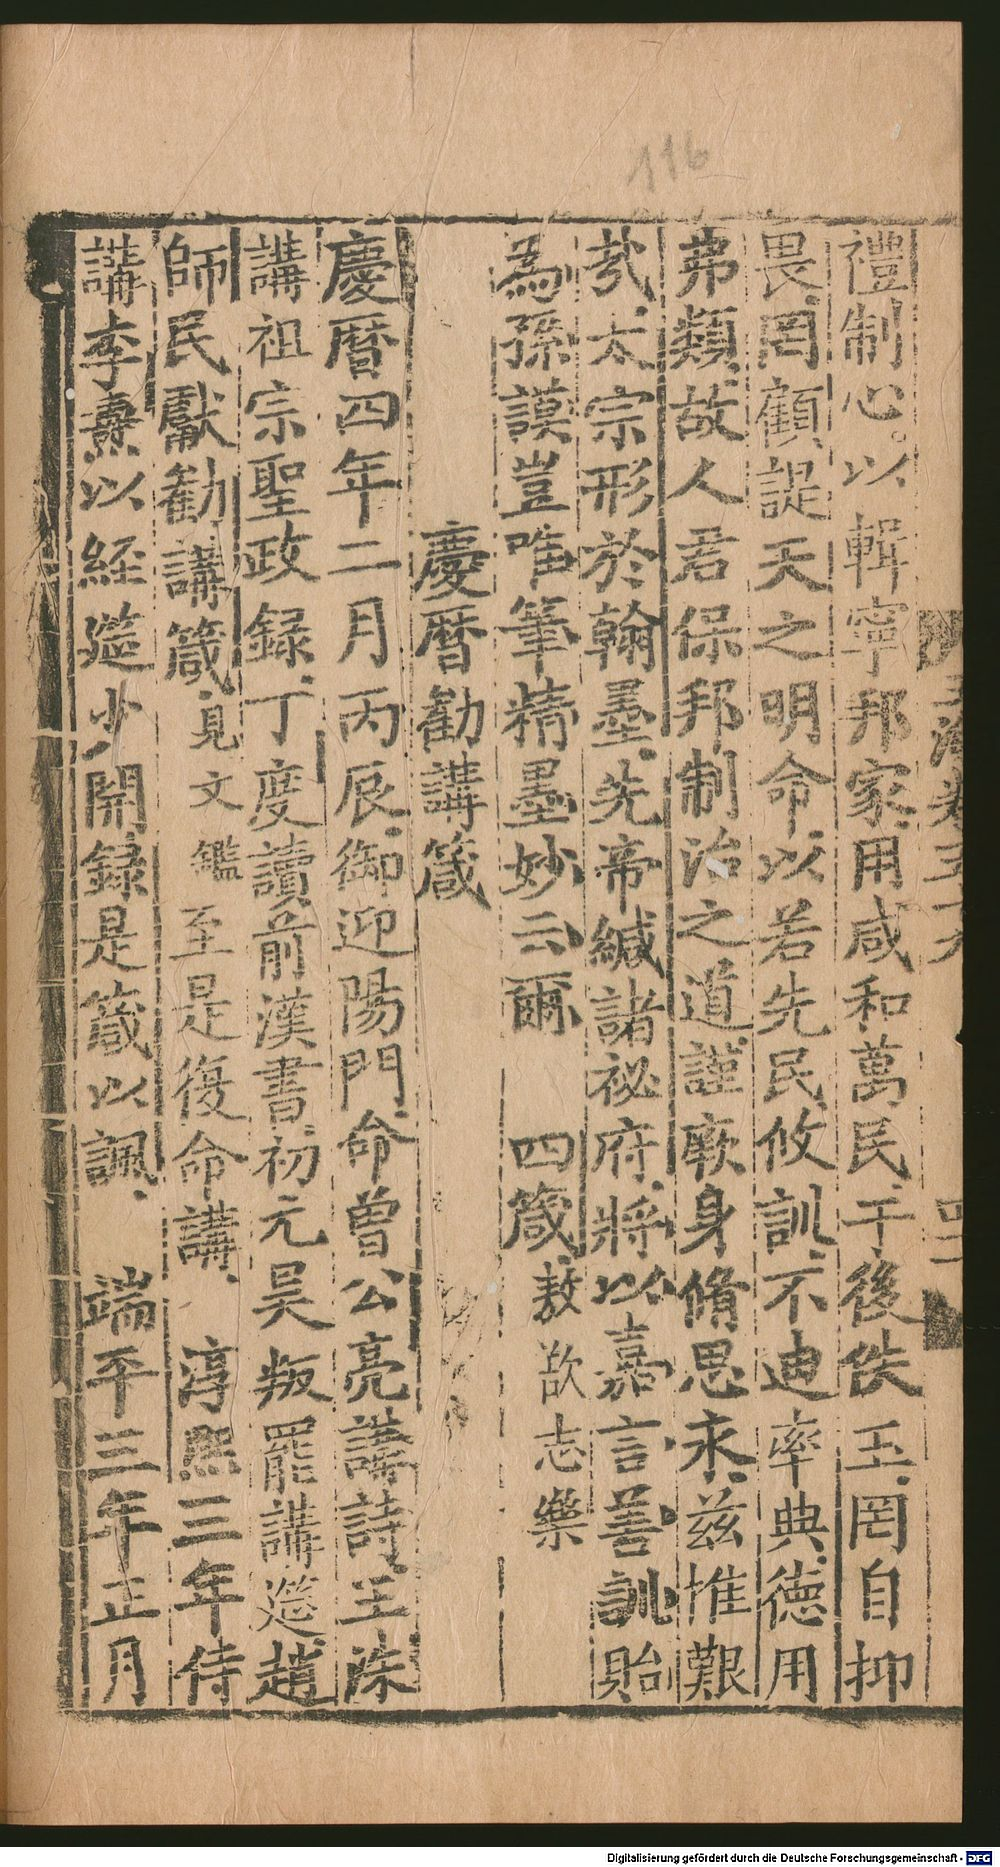 116
禮制心。以輯寧邦家。用咸和萬民。于後佚王。罔自抑
畏。罔顧諟天之明命。以若先民攸訓。不迪率典。德用
弗類。故人君保邦制治之道。謹厥身脩思永。茲惟艱
哉。太宗形於翰墨。先帝緘諸祕府。將以嘉言善訓貽
為孫謨豈唯筆精墨妙云爾 四箴。敖欲志樂
慶曆勸講箴
慶曆四年二月丙辰。御迎陽門。命曾公亮講詩。王洙
講祖宗聖政録。丁度讀前漢書。初元昊叛罷講筵。趙
師民獻勸講箴。見文鑑 至是復命講。 淳熙三年侍
講李燾以經筵少開録是箴以諷。 端平三年正月
Digitalisierung gefördert durch die Deutsche Forschungsgemeinschaft - DFG